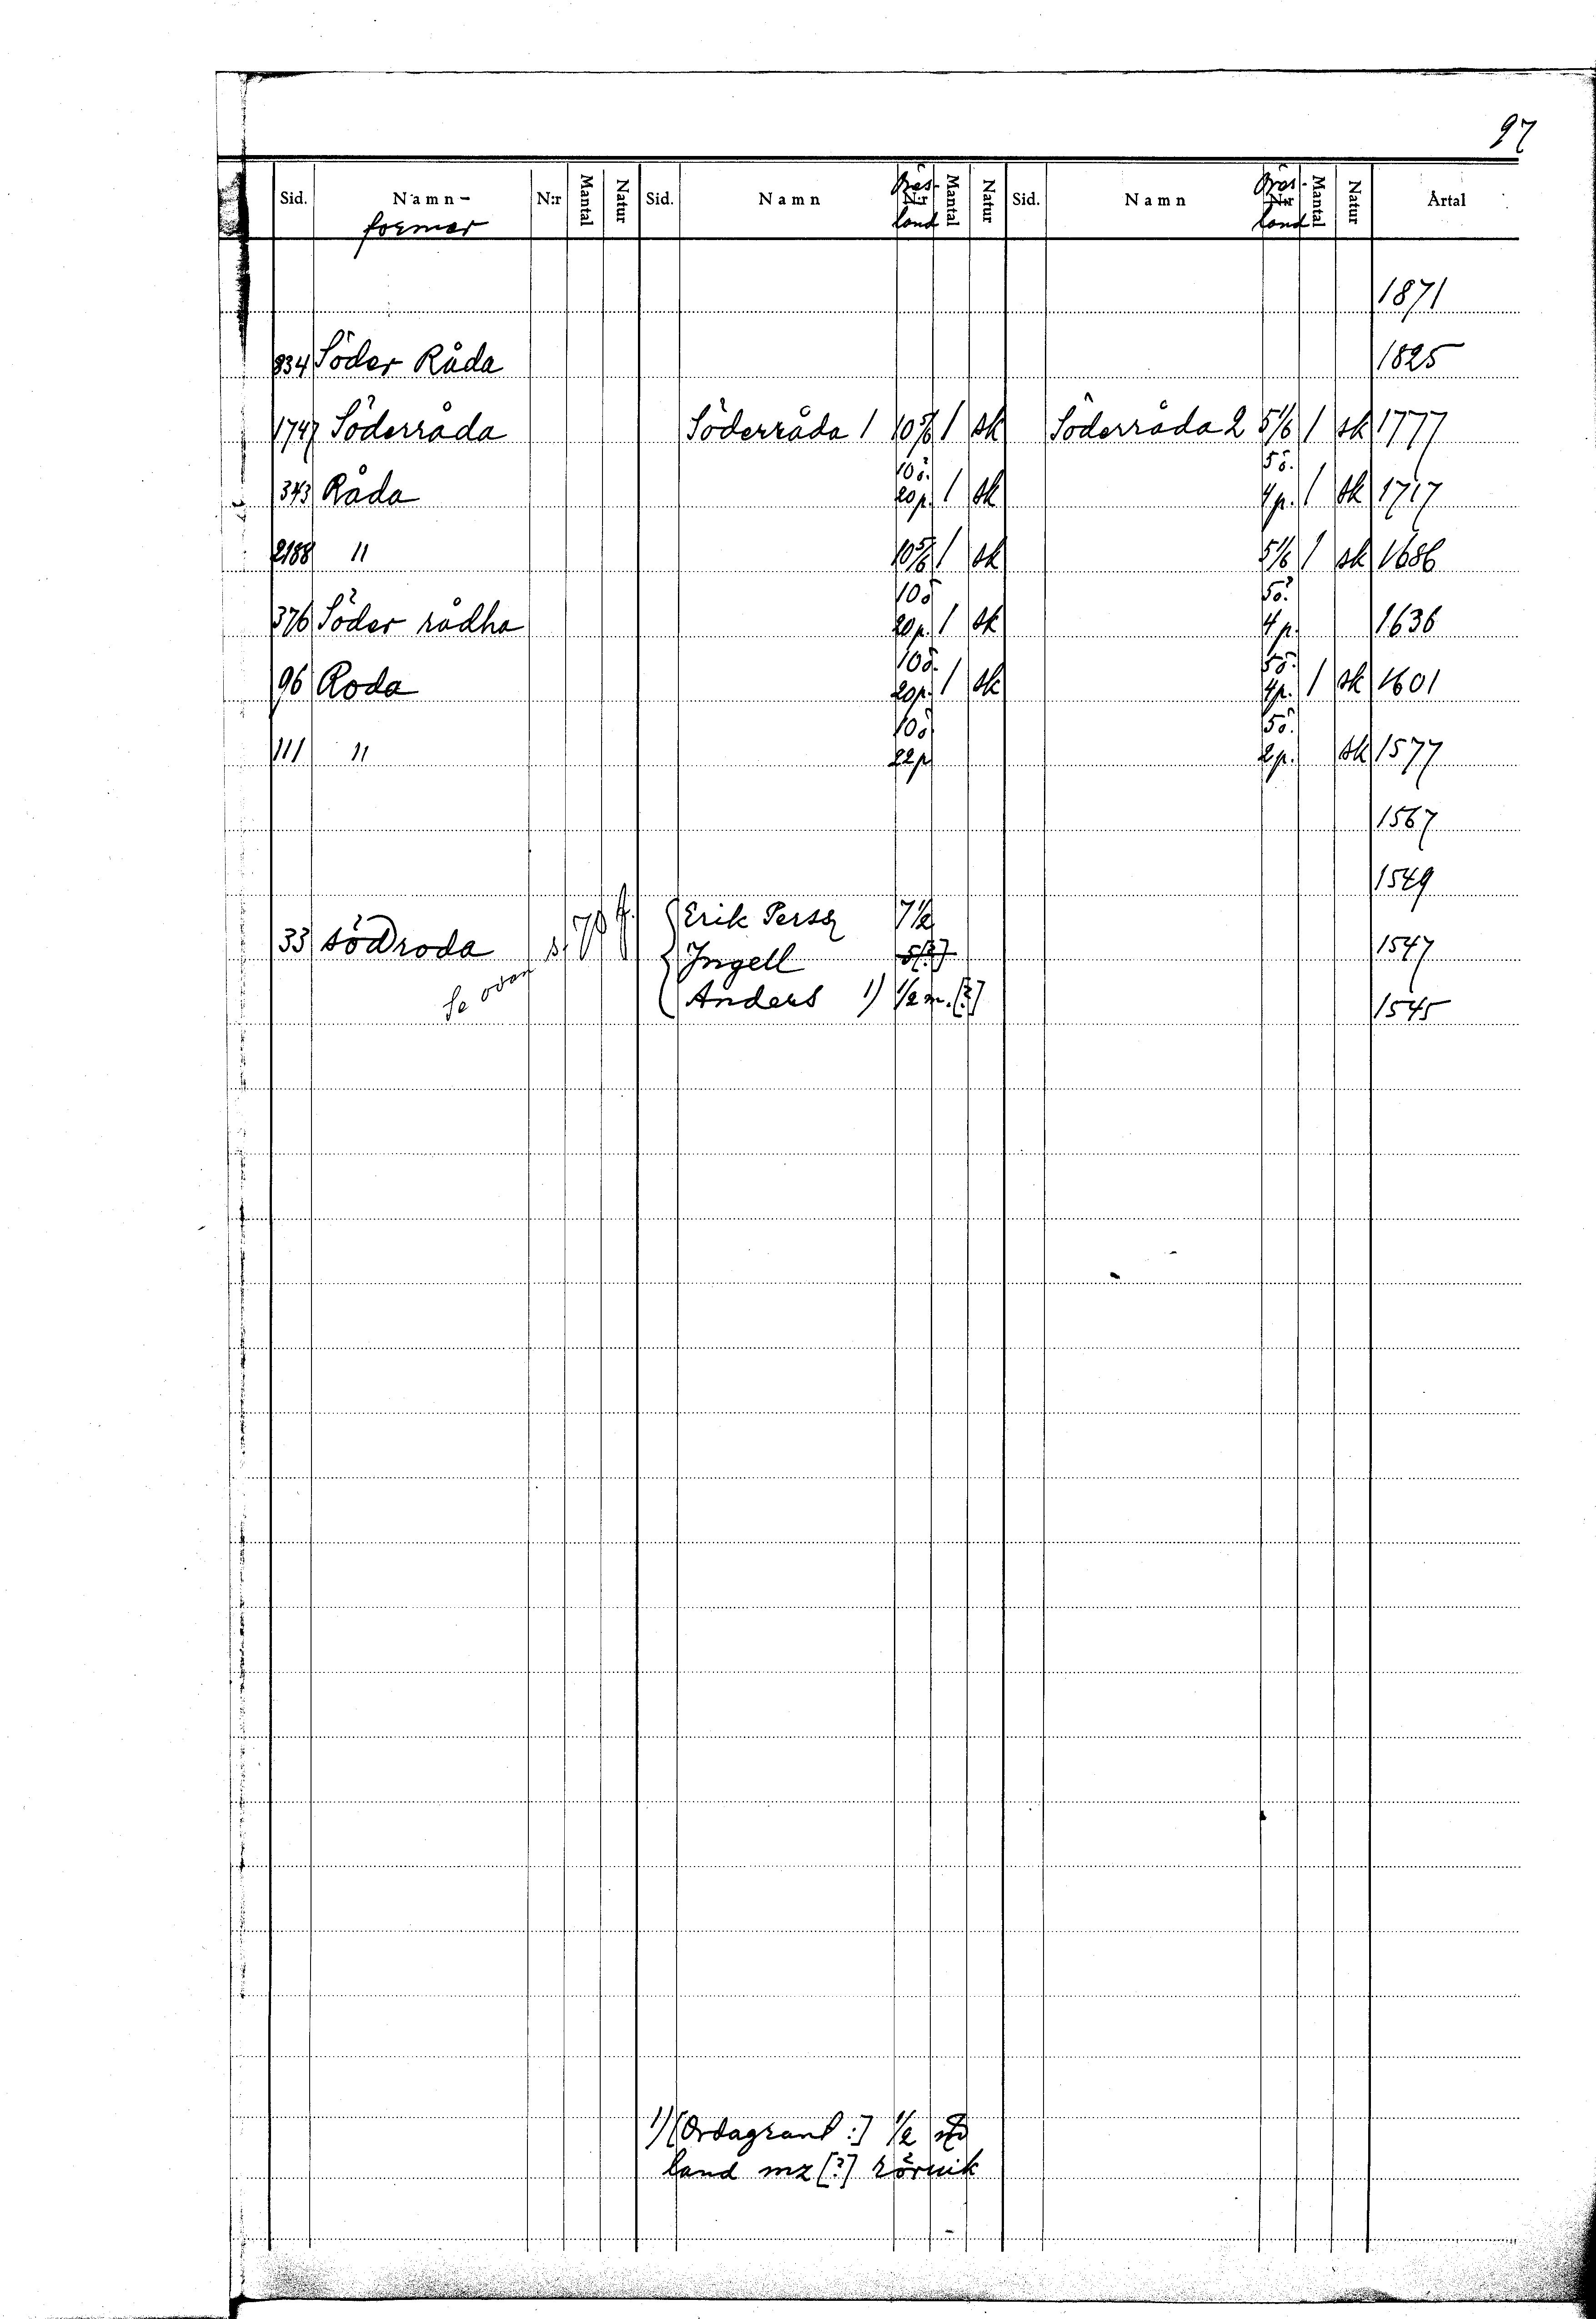 97
Sid. Namn- N:r Mantal Natur Sid. Namn Öres- N:r Mantal Natur Sid. Namn Öres- N:r Mantal Natur Årtal
former land land
1871
834 Söder Råda 1825
1747 Söderråda Söderråda 1 10 5/6 1 sk Söderråda 2 5 1/6 1 sk 1777
10ö. 5ö.
343 Råda 20p. 1 sk 4p. 1 sk 1717
2188 " 10 5/6 1 sk 5 1/6 1 sk 1686
10ö 5ö.
376 Söder rådha 20p. 1 sk 4p. 1636
10ö. 5ö.
96 Roda 20p. 1 sk 4p. 1 sk 1601
10ö. 5ö.
111 " 22p 2p. sk 1577
1567
1549
Erik Persz 7 1/2
33 södroda 1547
Ingell 5[?]
Se ovan
Anders 1) 1/2 m.[?] 1545
1) [Ordagrant:] 1/2
land mz [?] rörwik